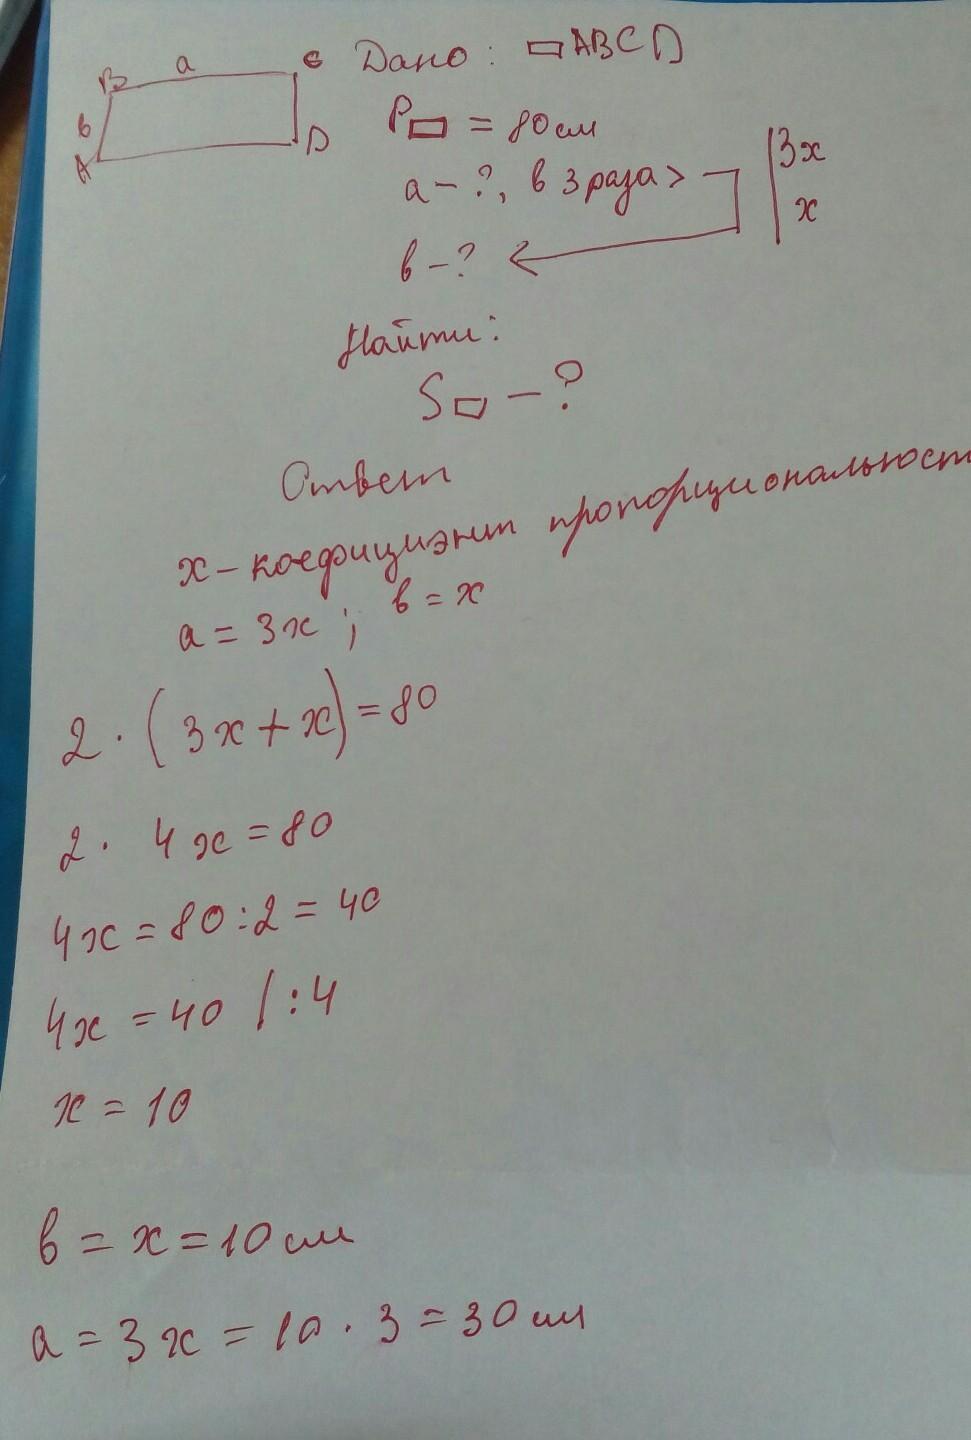 B a C
в
A D
Дано: ▭ABCD
P▭ = 80 см
a - ?, в 3 раза > 3x
в - ? x
Найти:
S▭ - ?
Ответ
x - коефициэнт пропорциональност
a = 3x ; в = x
2 · (3x + x) = 80
2 · 4x = 80
4x = 80 : 2 = 40
4x = 40 / : 4
x = 10
в = x = 10 см
a = 3x = 10 · 3 = 30 см